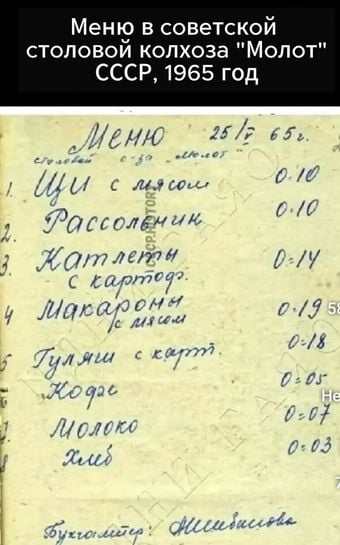 Меню в советской
столовой колхоза "Молот"
СССР, 1965 год
Меню 25/V 65 г.
столовой с-за "Молот"
1. Щи с мясом 0-10
2. Рассольник 0-10
3. Катлеты 0-14
с картоф.
4 Макароны 0-19
с мясом
5 Гуляш с карт. 0-18
6 Кофе 0=05
7. Молоко 0=07
8 Хлеб 0=03
Бухгалтер: